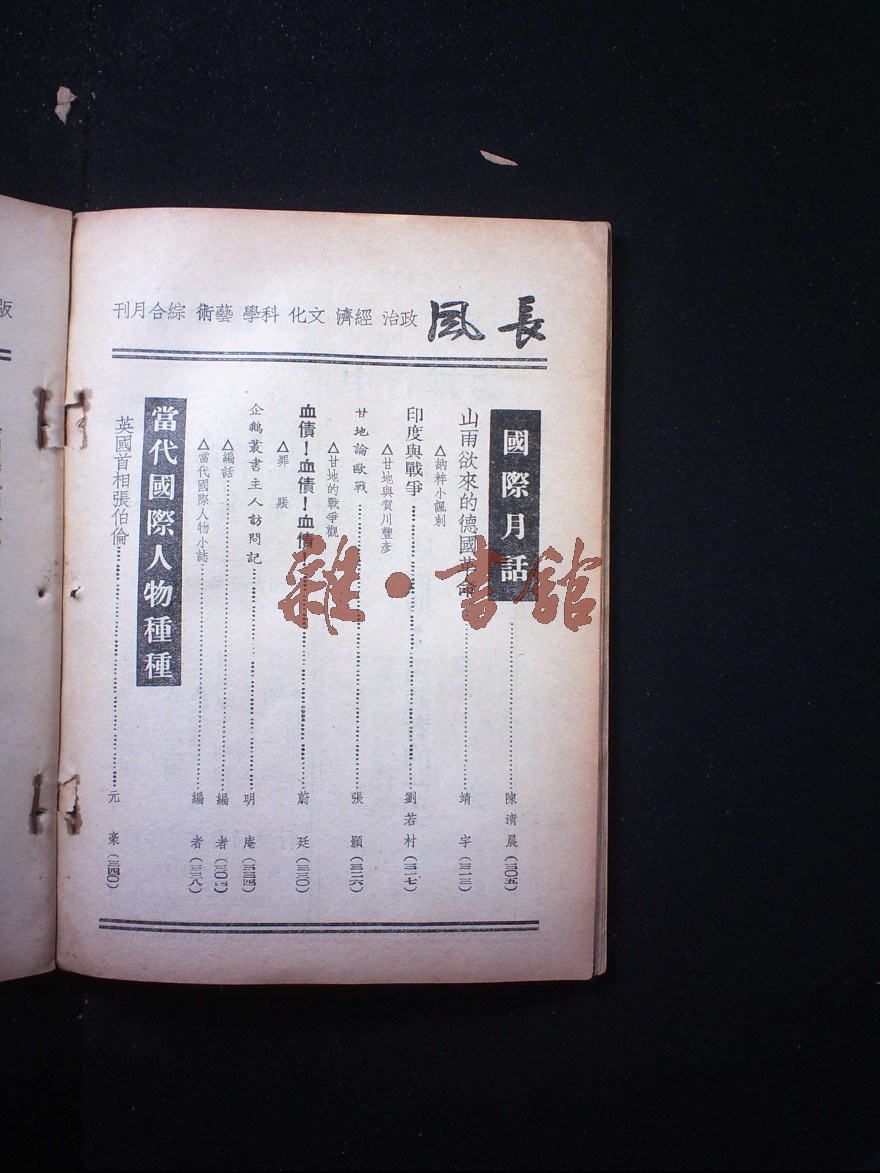 長風 政治 經濟 文化 科學 藝術 綜合月刊
國際月話……陳清晨(三〇五)
山雨欲來的德國革命……靖宇(三一三)
△納粹小諷刺
印度與戰爭……劉若村(三一七)
△甘地與賀川豐彥
甘地論歐戰……張顯(三二六)
△甘地的戰爭觀
血債!血債!血債!……蔚廷(三三〇)
△罪賬
企鵝叢書主人訪問記……明庵(三三四)
△編話……編者(三〇一)
△當代國際人物小誌……編者(三三八)
當代國際人物種種
英國首相張伯倫……元豪(三四〇)
版
雜·書館